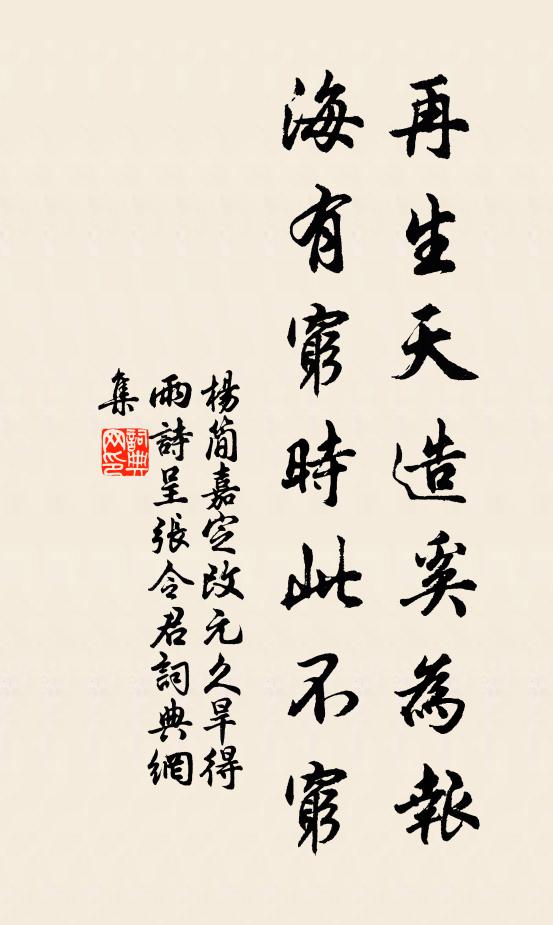 再生天造奚為報
海有窮時此不窮
楊簡嘉定改元久旱得
雨詩呈張令君詞典網
集
詞典
网印